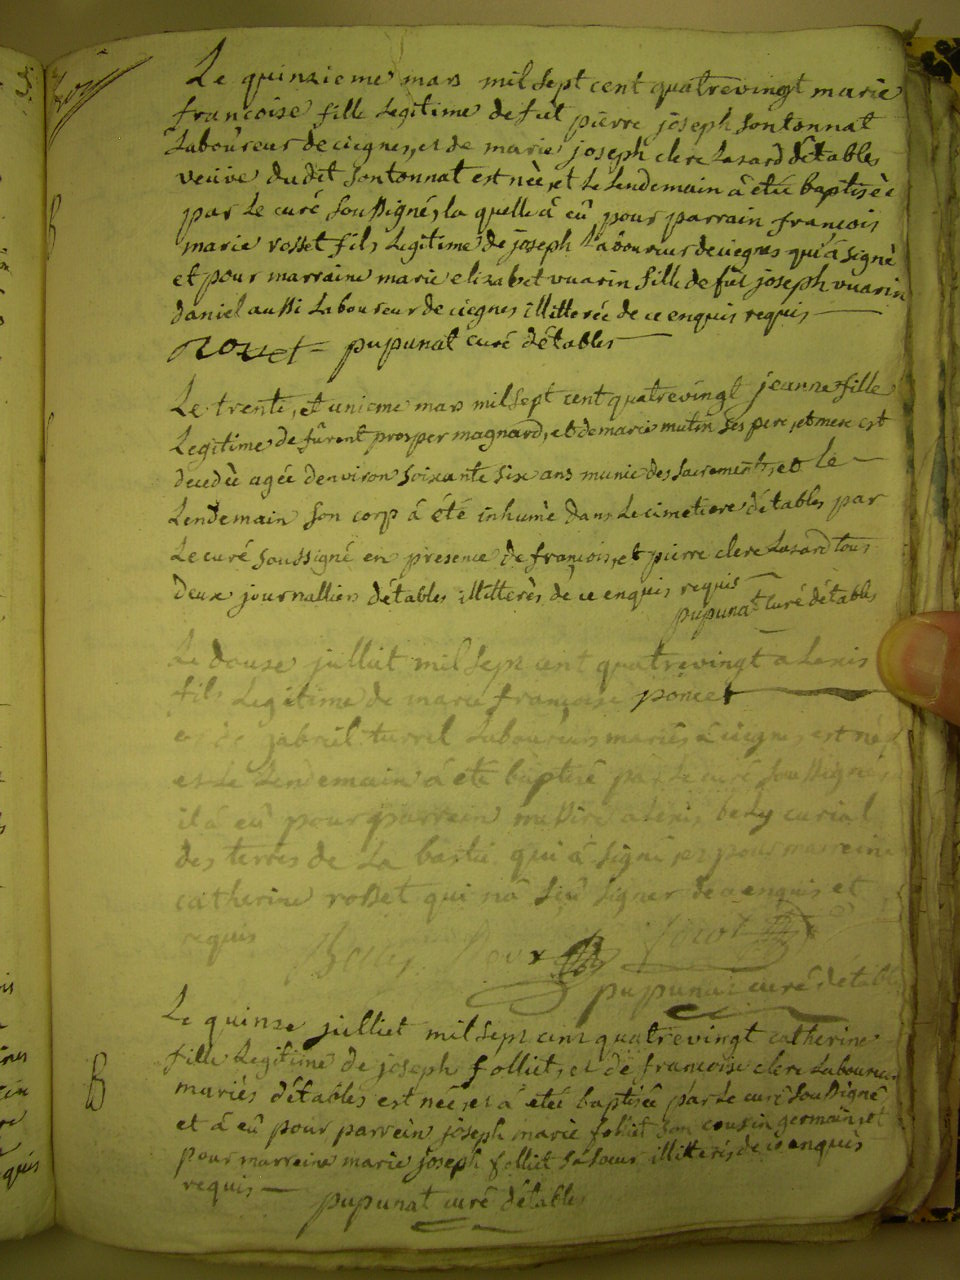 Le quinzieme mars mil sept cent quatrevingt marie
francoise fille legitime de fut pierre joseph sontonnat
laboureur de ciegnes, et de marie joseph clerc lasard détables
veuve du dit sontonnat est née, et le lendemain à eté baptisée
par le curé soussigné, la quelle à eû pour parrain francois
marie rosset fils legitime de joseph laboureur de ciegnes qui à signé
et pour marraine marie elizabet vuarin fille de fut joseph vuarin
daniel aussi laboureur de ciegnes illitterée de ce enquis requis
pupunat curé détables
Le trente, et unieme mars mil sept cent quatrevingt jeanne fille
legitime de fûrent prosper magnard, et de marie mutin ses pere, et mere est
decedée agée denviron soixante six ans munie des sacrements, et le
lendemain son corp à été inhumé dans le cimetiere détables par
le curé soussigné en presence de francois, et pierre clerc lasard tous
deux journalliers détables illitterés de ce enquis requis
pupunat curé détables
Le douse julliet mil sept cent quatrevingt alexis
fils legitime de marie francoise poncet
et de gabriel turrel laboureurs mariés à ciegnes, est né
et le lendemain à eté baptisé par le curé soussigné
il à eû pour parrein messire alexis bely curial
des terres de la bastie qui à signé, et pour marreine
catherine rosset qui nà sçû signer de ce enquis et
requis
pupunat curé détables
Le quinse julliet mil sept cent quatrevingt catherine
fille legitime de joseph folliet, et de francoise clerc laboureurs
mariés détables est née, et à eté baptisée par le curé soussigné
et à eû pour parrein joseph marie folliet son cousin germain, et
pour marreine marie joseph folliet sa soeur illiterés de ce enquis
requis
pupunat curé détables